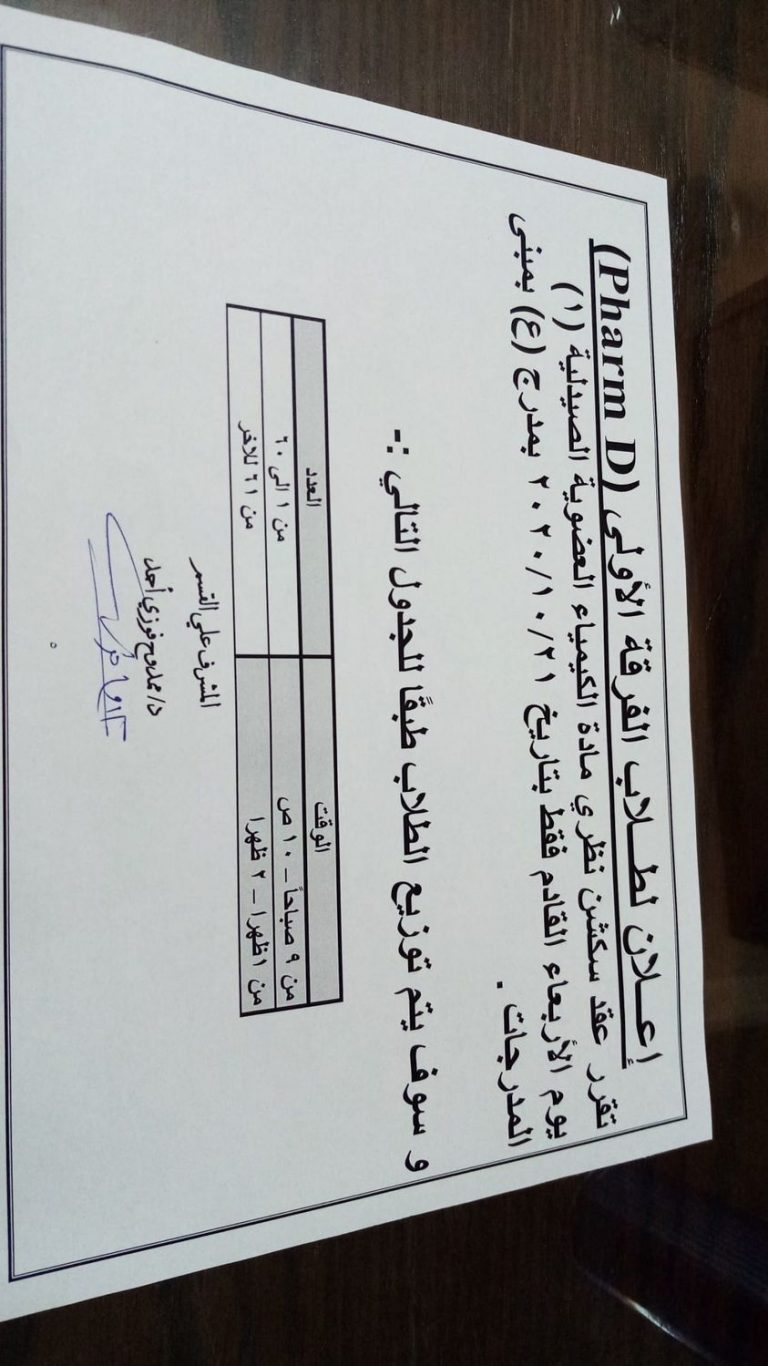 إعـــلان لطـــلاب الفرقة الأولى (Pharm D)
تقرر عقد سكشن نظري مادة الكيمياء العضوية الصيدلية (١)
يوم الأربعاء القادم فقط بتاريخ ٢٠٢٠/١٠/٢١ بمدرج (ع) بمبنى
المدرجات .
و سوف يتم توزيع الطلاب طبقًا للجدول التالي :-
الوقت العدد
من ٩ صباحاً – ١٠ ص من ١ الى ٦٠
من ١ظهرا – ٢ ظهرا من ٦١ للاخر
المشرف علي القسم
د/ ممدوح فوزي أحمد